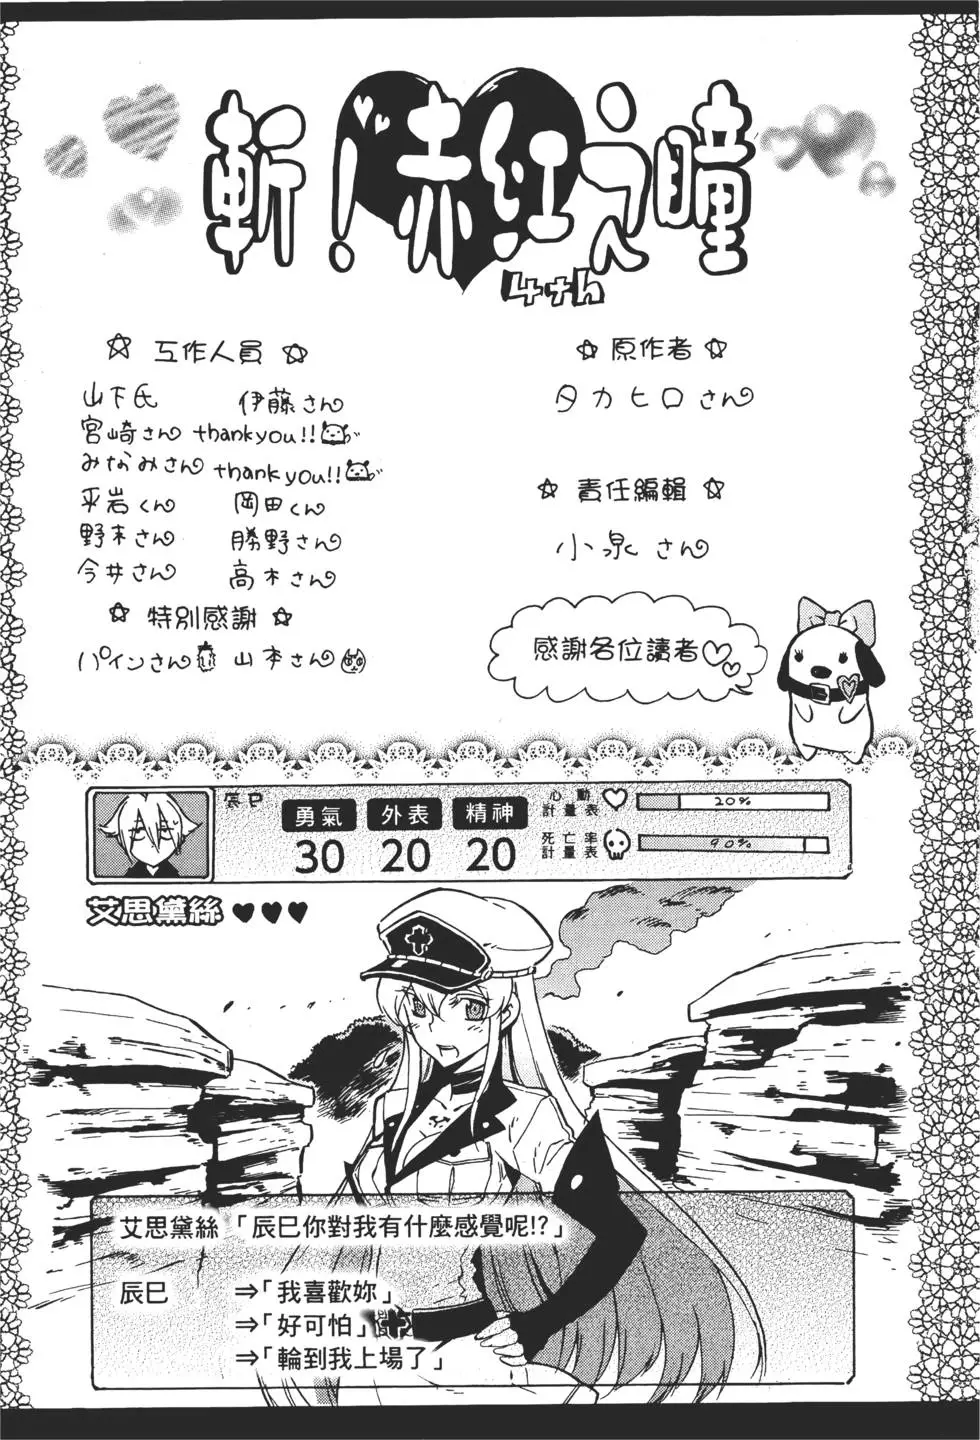 斬!赤紅之瞳
4th
☆ 工作人員 ☆
山下氏 伊藤さん
宮崎さん thank you!!
みなみさん thank you!!
平岩くん 岡田くん
野木さん 勝野さん
今井さん 高木さん
☆ 特別感謝 ☆
パインさん 山本さん
☆ 原作者 ☆
タカヒロさん
☆ 責任編輯 ☆
小泉さん
感謝各位讀者♡♡
辰巳
勇氣 外表 精神
30 20 20
心動計量表 20%
死亡率計量表 90%
艾思黛絲 ♥♥♥
艾思黛絲「辰巳你對我有什麼感覺呢!?」
辰巳 ⇒「我喜歡妳」
⇒「好可怕」
⇒「輪到我上場了」